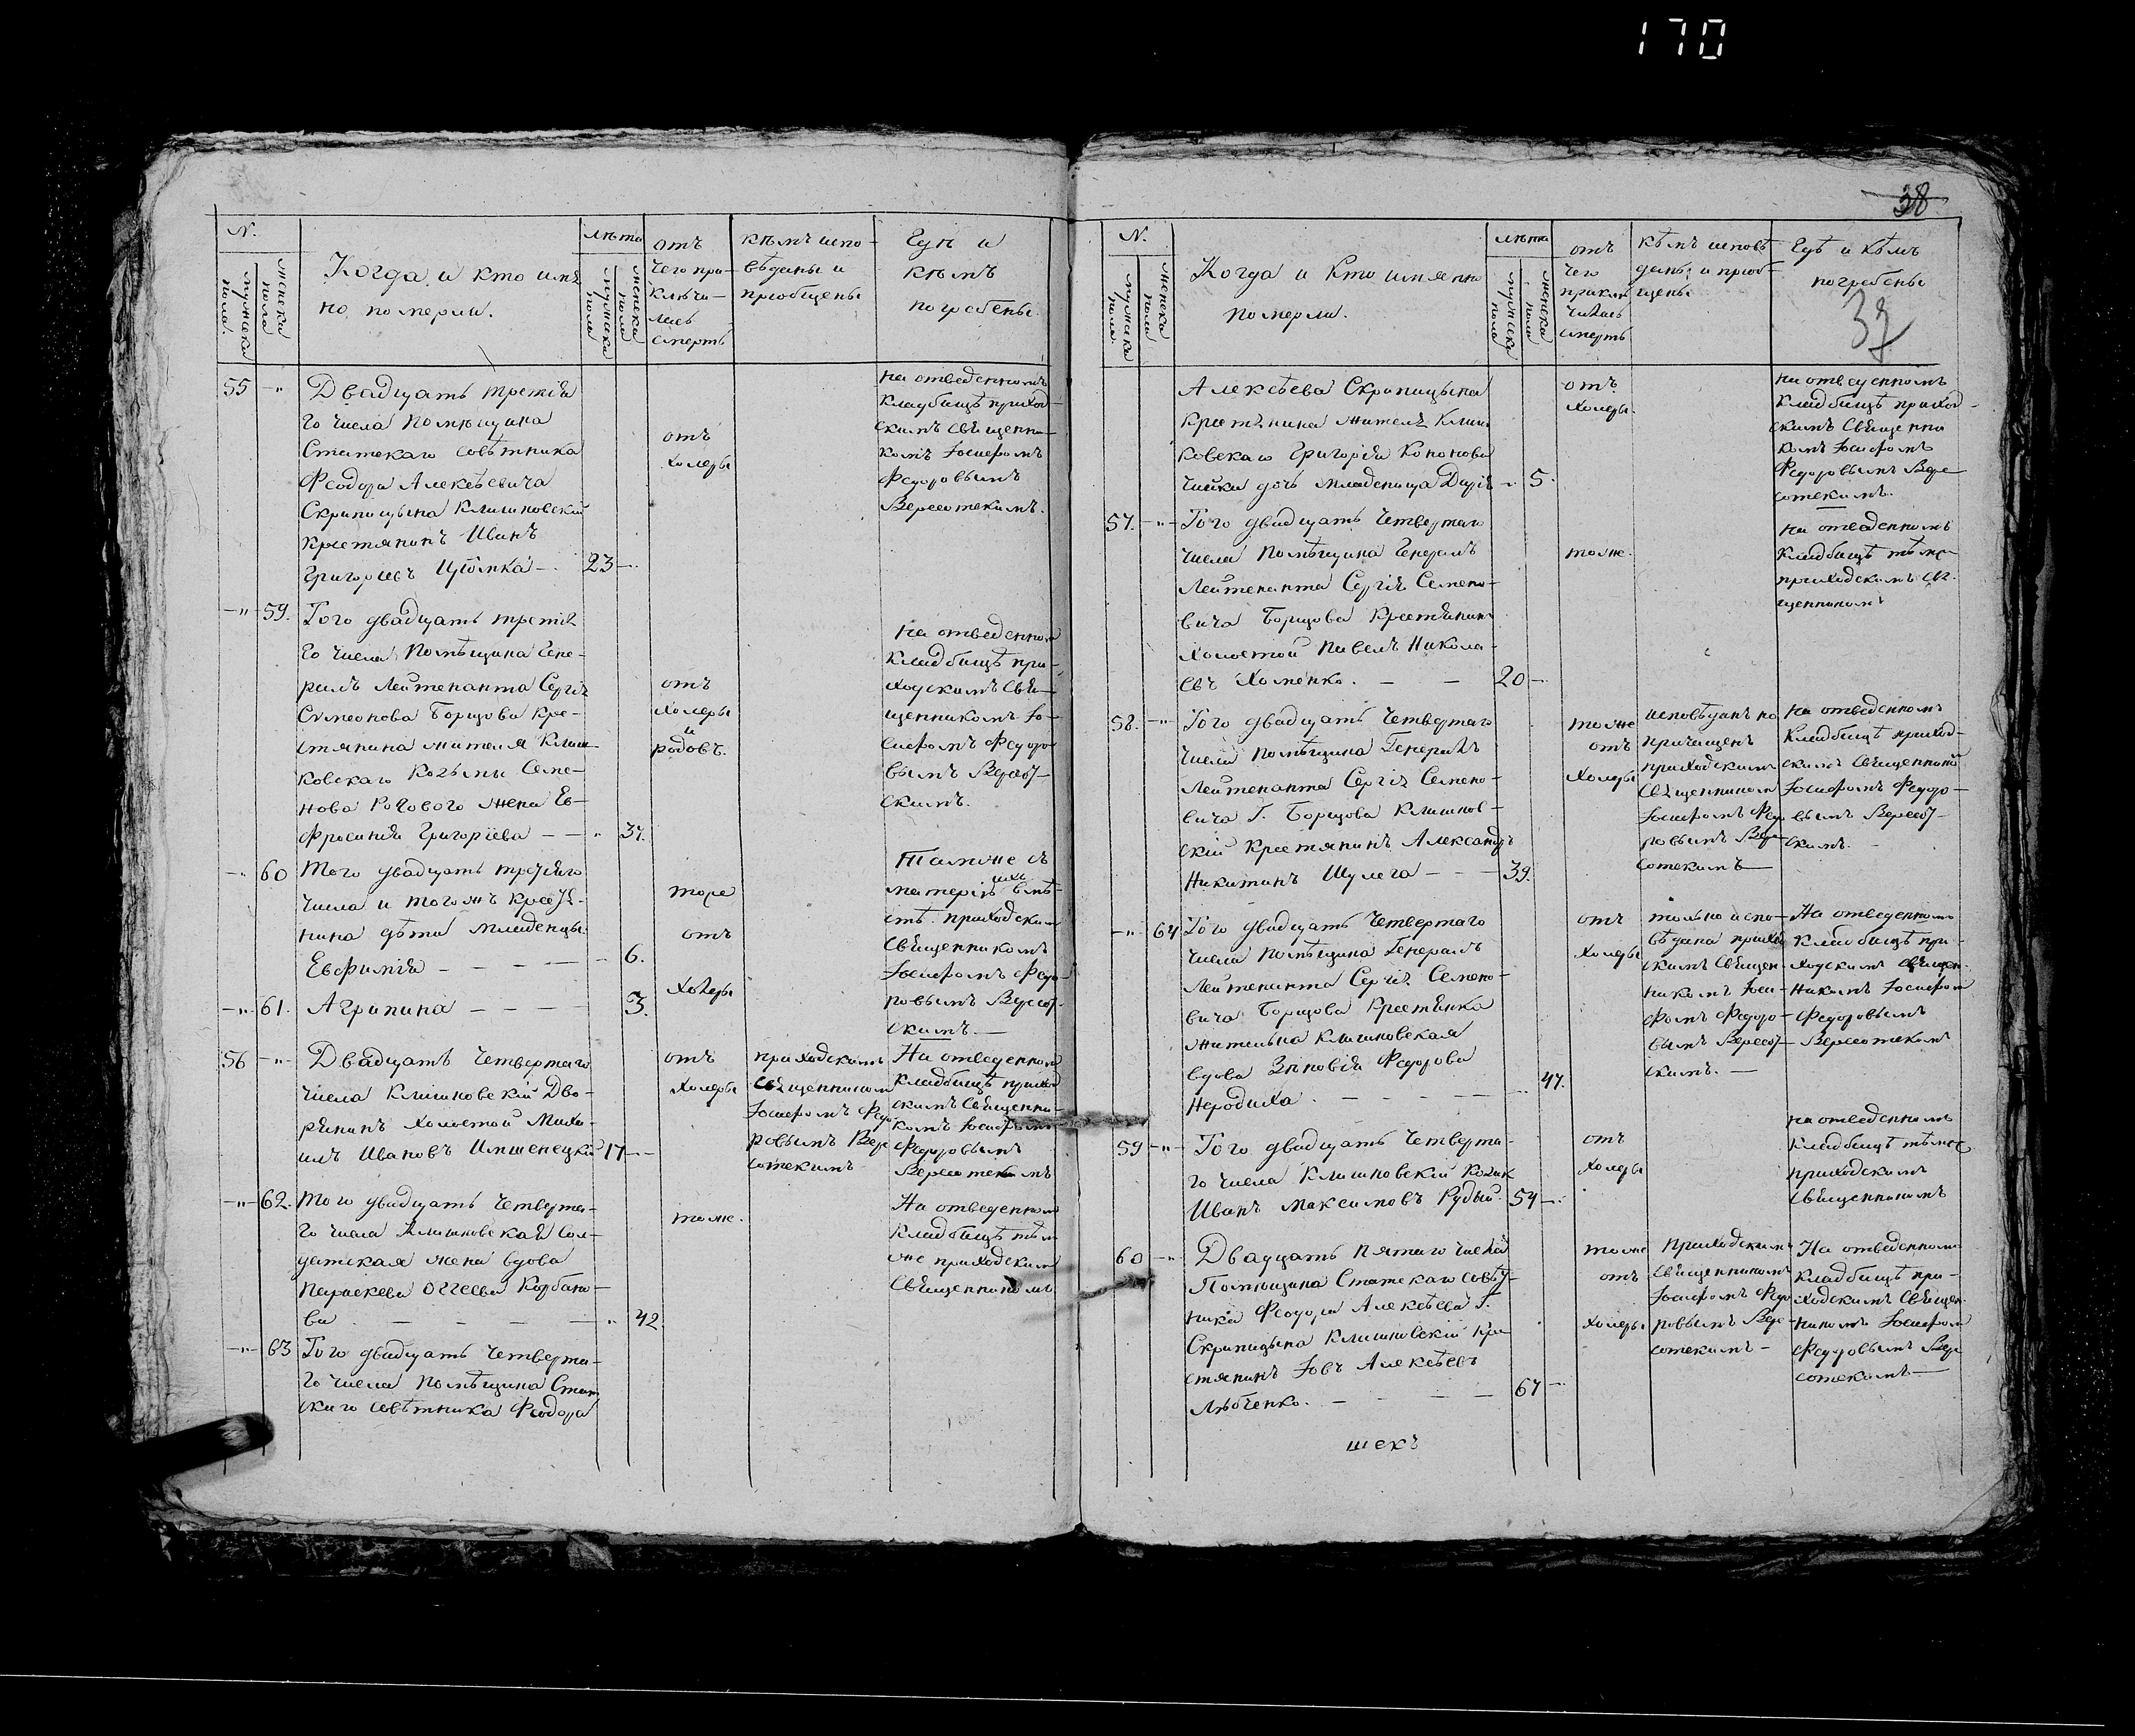 170
38
N.
мужеска пола.
женска пола
Когда и кто имя
но померли.
лѣта
мужеска пола
женска пола
отъ
чего при-
клычи-
лась
смерть
кѣмъ испо-
вѣданы и
приобщены
Гдѣ и
кѣмъ
погребены.
55 -"- Двадцать третія
го числа Помѣщика
Статскаго совѣтника
Феодора Алексѣевича
Скрипицына Клишковскій
крестянинъ Иванъ
Григорьевъ - 23 -
отъ
холеры
на отведенномъ
кладбищѣ приход-
скимъ Священни-
комъ Іосифомъ
Федоровымъ
Вересотскимъ.
-"- 59. Того двадцать третія
го числа Помѣщика Гене-
ралъ Лейтенанта Сергія
Симеонова Борщова кре-
стянина жителя Клиш-
ковскаго Козьмы Семе-
нова Роговаго жена Ев-
фросинія Григоріева - - " 37.
отъ
холеры
и
родовъ.
на отведенном
кладбищѣ при-
ходскимъ Свя-
щенникомъ Іо-
сифомъ Федоро
вымъ Вересот-
скимъ.
-" 60 Того двадцать третяго
числа и того жъ крестя-
нина дѣти младенцы
Евфимія - - - - 6.
-"- 61. Агрипина - - - - 3.
тоже
отъ
холеры
Тамже съ
матерію ими вмѣ-
стѣ приходским
Священникомъ
Іосифомъ Федо-
ровымъ Вересот-
скимъ.-
56 -"- Двадцать четвертаго
числа Клишковскій Дво-
рянинъ холостой Миха-
илъ Ивановъ Имшенецкій 17 -
отъ
холеры
приходскимъ
Священником
Іосифомъ Федо
ровымъ Вере
сотскимъ
На отведенном
кладбищѣ приход
скимъ Священни-
комъ Іосифомъ
Федоровымъ
Вересотскимъ
-"- 62. Того двадцать четверта-
го числа Клишковская Сол-
датская жена вдова
Параскева
ва. - - - - - " 42.
тоже.
На отведенном
кладбищѣ тѣм
же приходским
Священникомъ
-"- 63 Того двадцать четверта-
го числа Помѣщика Стат
скаго совѣтника Феодора
N.
мужеска пола
женска пола
Когда и кто имянно
померли.
лѣта
мужеска пола
женска пола
отъ
чего
приклю
чилась
смерть
кѣмъ исповѣ
даны и приоб-
щены
Гдѣ и кѣмъ
погребены
37
Алексѣева Скрипицына
крестянина жителя Клиш
ковскаго Григорія Кононова
дочь младеница Дарія - 5.
отъ
холеры.
на отведенномъ
кладбищѣ приход-
скимъ Священни
комъ Іосифомъ
Федоровымъ Вере
сотскимъ.
57. -"- Того двадцать четвертаго
числа Помѣщика Генералъ
Лейтенанта Сергія Семено-
вича Борщова Крестянинъ
Холостой Павелъ Никола-
евъ Хоменко. - - 20 -
тоже.
на отведенномъ
кладбищѣ тѣмже
приходскимъ Свя-
щенникомъ
58. -"- Того двадцать четвертаго
числа Помѣщика Генералъ
Лейтенанта Сергія Семено-
вича Г. Борщова Клишков-
скій Крестянинъ Александръ
Никитинъ Шулега - - - 39.
тоже
отъ
холеры
исповѣданъ но
причащенъ
приходскимъ
Священником
Іосифомъ Федо
ровымъ Вере-
сотскимъ -
На отведенномъ
кладбищѣ приход-
скимъ Священником
Іосифомъ Федоро-
вымъ Вересот-
скимъ. -
-"- 64 Того двадцать четвертаго
числа Помѣщика Генералъ
Лейтенанта Сергія Семено-
вича Борщова Крестянка
жителька Клишковская
вдова Зиновія Федорова
Неродиха. - - - - - 47.
отъ
холеры
только испо-
вѣдана приход
скимъ Священ-
никомъ Іоси-
фомъ Федоро-
вымъ Вересот-
скимъ. -
На отведенномъ
кладбищѣ при-
ходскимъ Священ-
никомъ Іосифом
Федоровымъ
Вересотскимъ
59 -"- Того двадцать четверта-
го числа Клишковскій Козак
Иванъ Максимовъ Рудый. 54 -
отъ
холеры
на отведенномъ
кладбищѣ тѣмже
приходскимъ
Священникомъ
60 -"- Двадцать пятаго числа
Помѣщика Статскаго совѣт-
ника Феодора Алексѣева Г.
Скрипицына Клишковскій кре
стянинъ Іовъ Алексѣевъ
Лябченко. - - - - 67 -
тоже
отъ
холеры
Приходскимъ
Священникомъ
Іосифомъ Федо
ровымъ Вере-
сотскимъ -
На отведенном
кладбищѣ при-
ходскимъ Священ-
никомъ Іосифом
Федоровымъ Вере
сотскимъ -